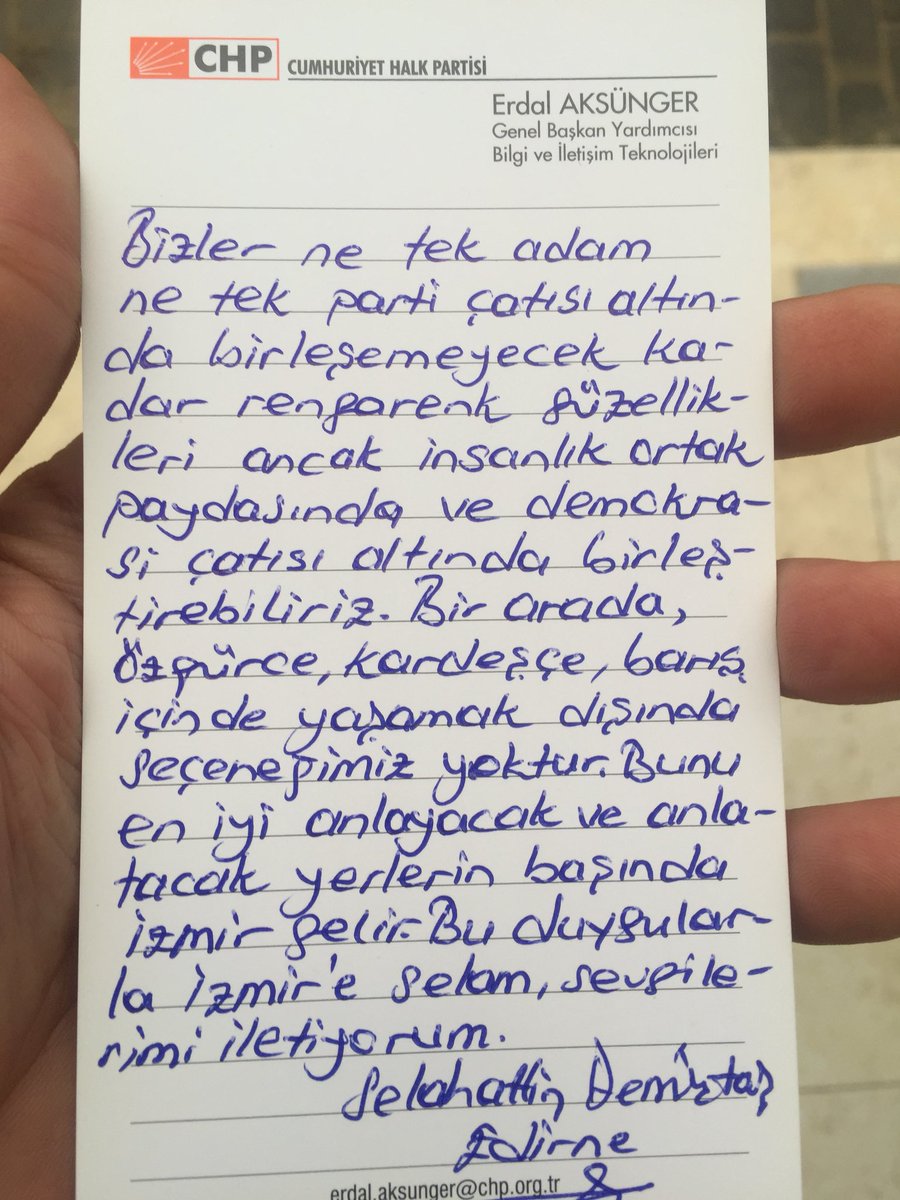 CHP CUMHURİYET HALK PARTİSİ
Erdal AKSÜNGER
Genel Başkan Yardımcısı
Bilgi ve İletişim Teknolojileri
Bizler ne tek adam
ne tek parti çatısı altın-
da birleşemeyecek ka-
dar rengarenk güzellik-
leri ancak insanlık ortak
paydasında ve demokra-
si çatısı altında birleş-
tirebiliriz. Bir arada,
Özgürce, kardeşçe, barış
içinde yaşamak dışında
seçeneğimiz yoktur. Bunu
en iyi anlayacak ve anla-
tacak yerlerin başında
İzmir gelir. Bu duygular-
la İzmir'e selam, sevgile-
rimi iletiyorum.
Selahattin Demirtaş
Edirne
erdal.aksunger@chp.org.tr